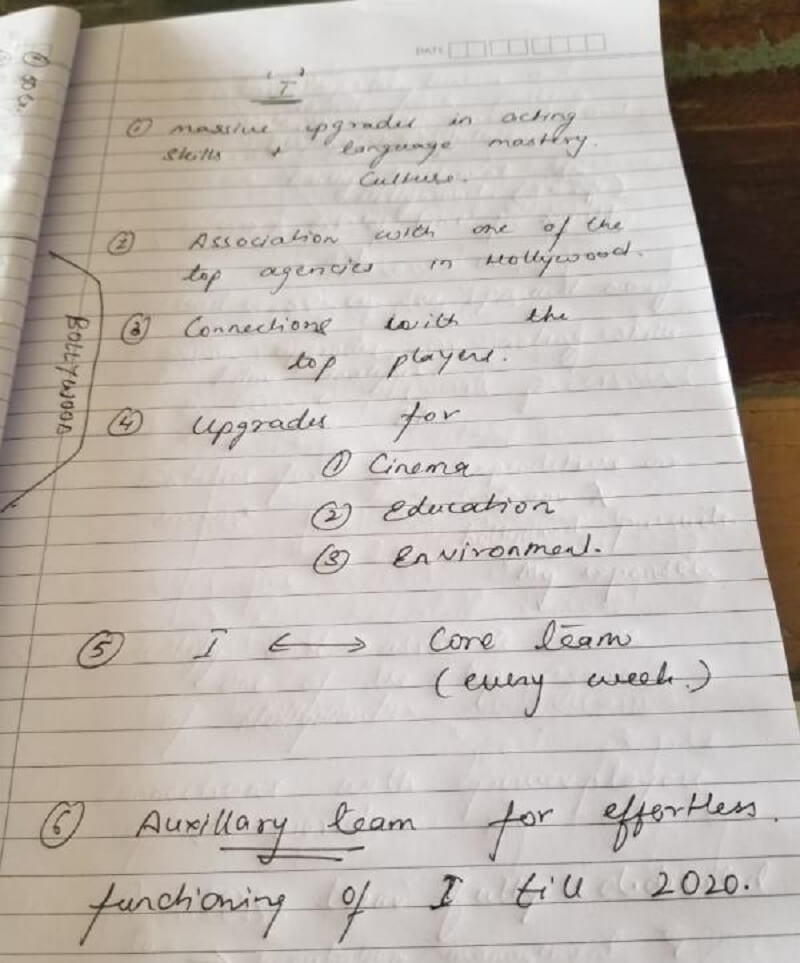 DATE
"I"
① massive upgrades in acting
skills + language mastery.
Culture.
② Association with one of the
top agencies in Hollywood.
③ Connections with the
top players.
④ upgrades for
① Cinema
② Education
③ Environment.
⑤ I ↔ Core team
(every week.)
⑥ Auxillary team for effortless.
functioning of I till 2020.
BOLLYWOOD